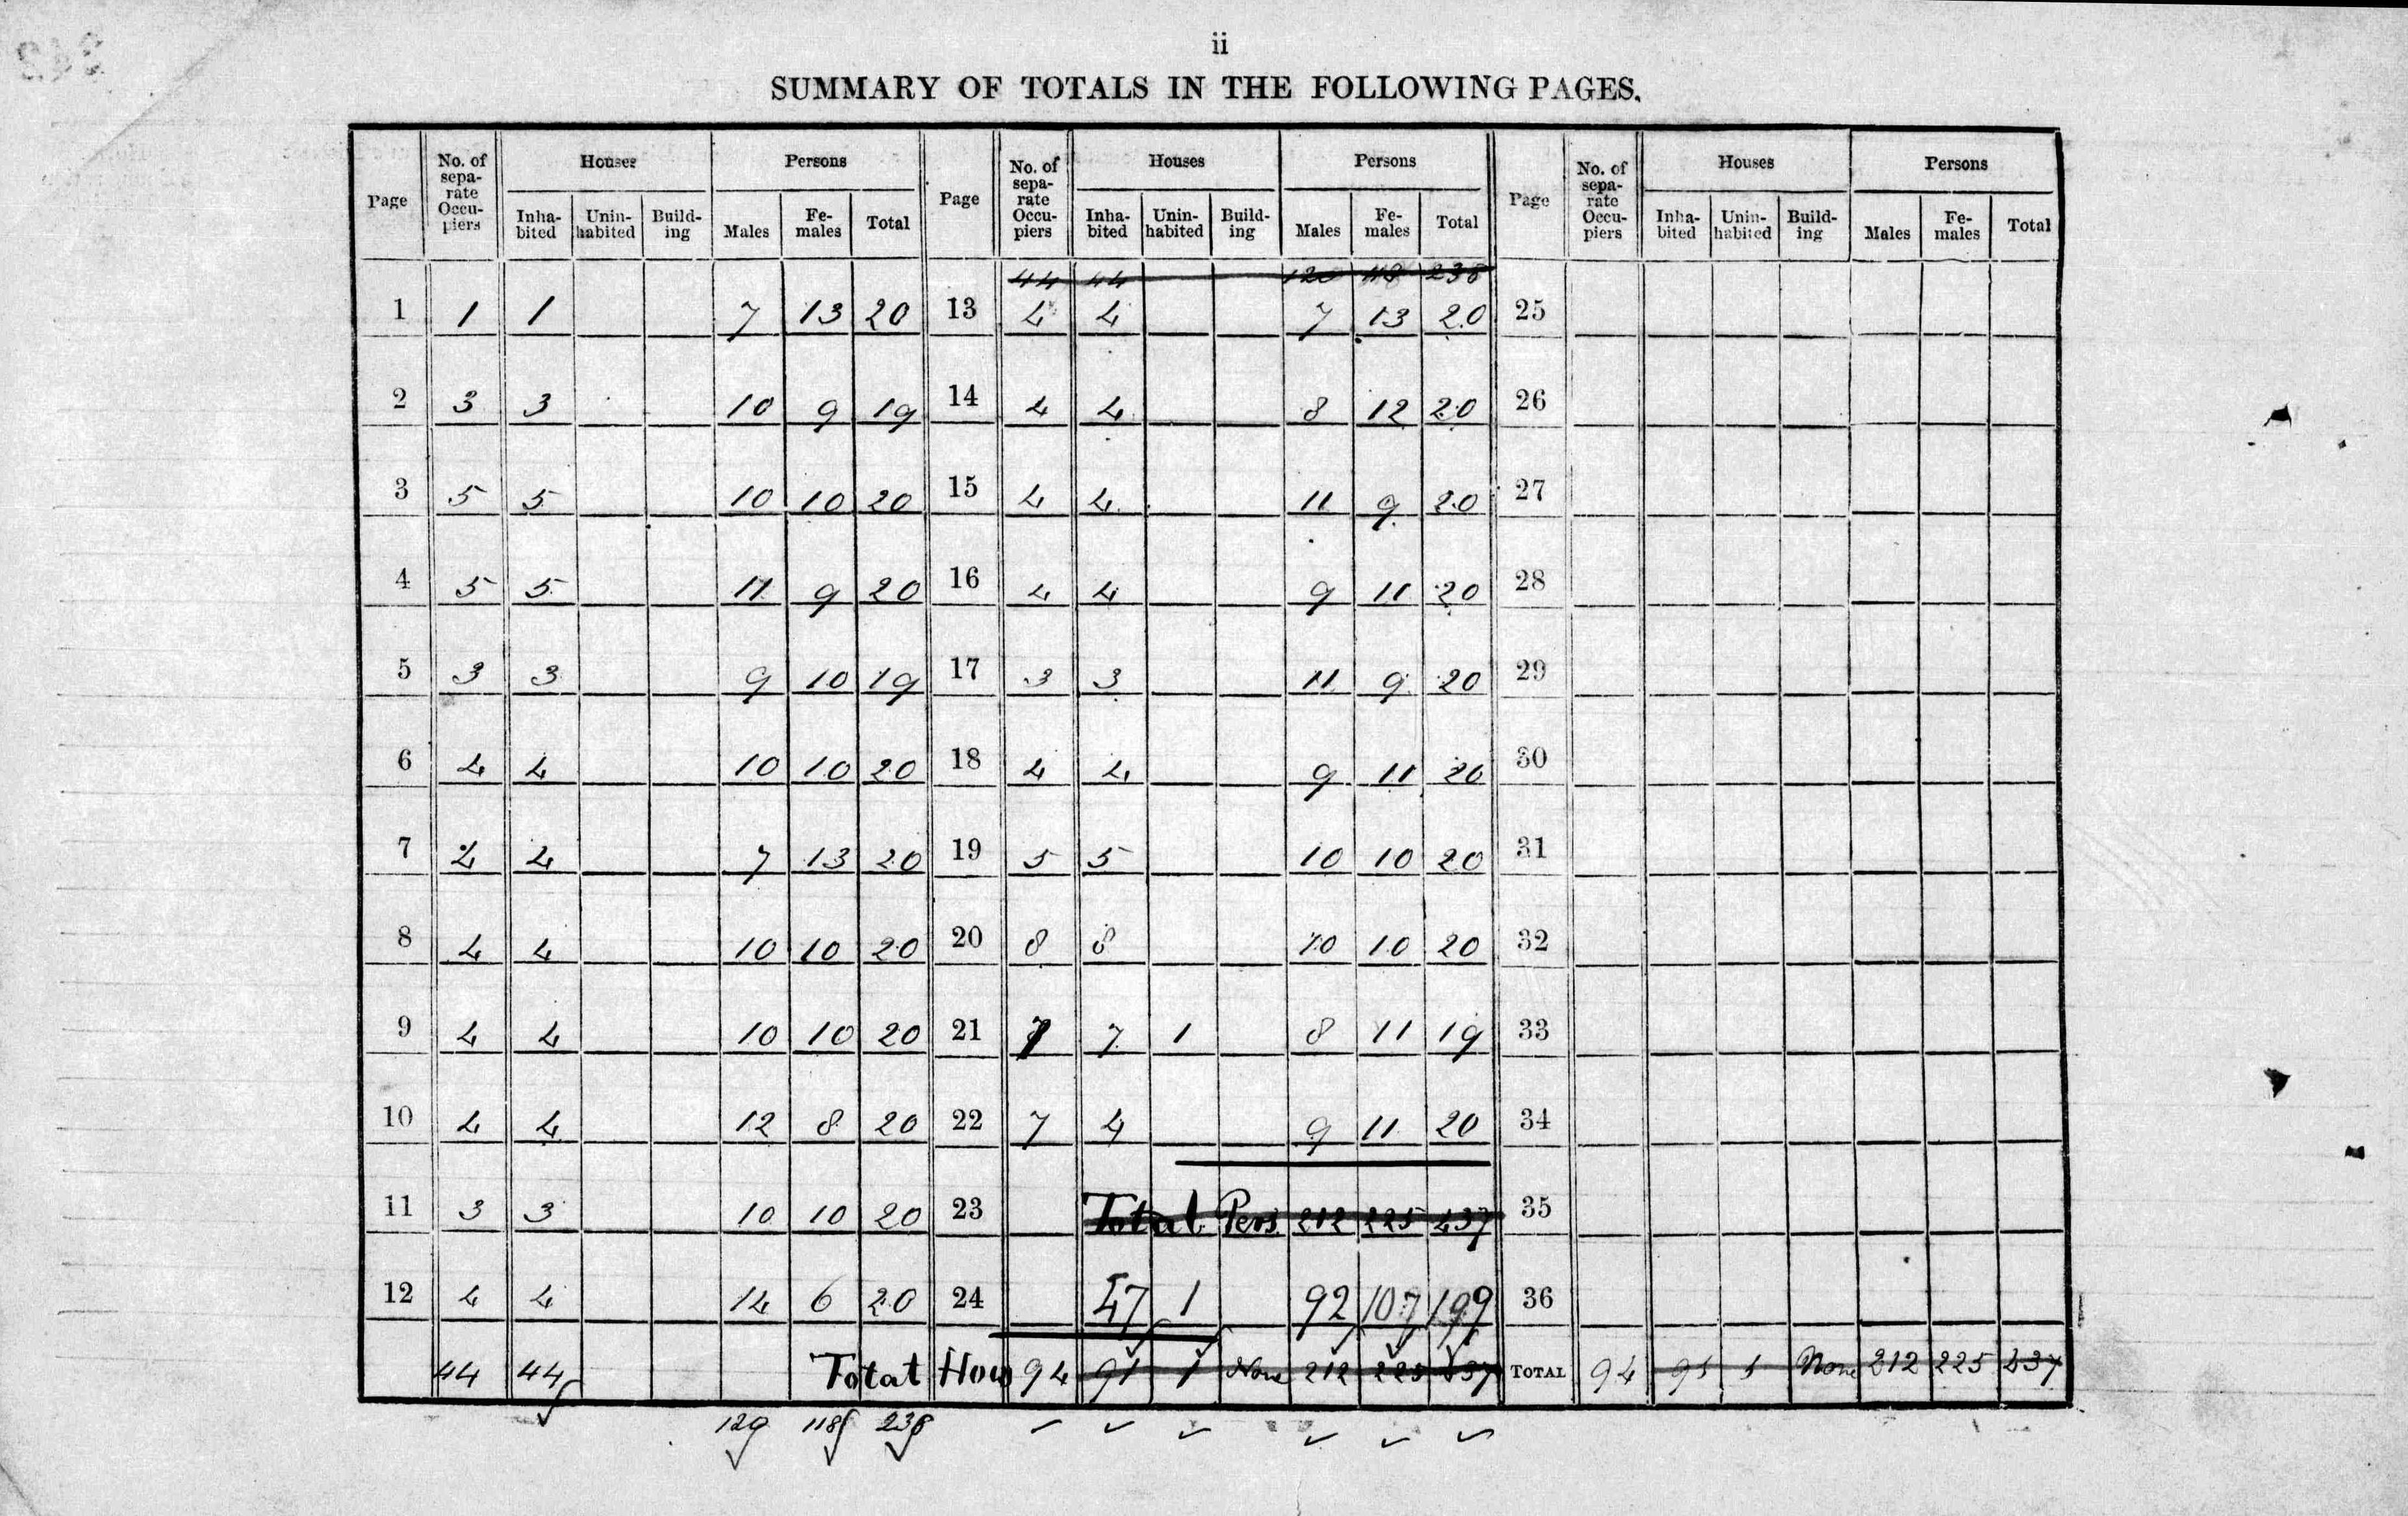 ii
SUMMARY OF TOTALS IN THE FOLLOWING PAGES.
Page No. of sepa-rate Occu-piers Houses Inha-bited Unin-habited Build-ing Persons Males Fe-males Total Page No. of sepa-rate Occu-piers Houses Inha-bited Unin-habited Build-ing Persons Males Fe-males Total Page No. of sepa-rate Occu-piers Houses Inha-bited Unin-habited Build-ing Persons Males Fe-males Total
44 44 120 118 238
1 1 1 7 13 20 13 4 4 7 13 20 25
2 3 3 10 9 19 14 4 4 8 12 20 26
3 5 5 10 10 20 15 4 4 11 9 20 27
4 5 5 11 9 20 16 4 4 9 11 20 28
5 3 3 9 10 19 17 3 3 11 9 20 29
6 4 4 10 10 20 18 4 4 9 11 20 30
7 4 4 7 13 20 19 5 5 10 10 20 31
8 4 4 10 10 20 20 8 8 10 10 20 32
9 4 4 10 10 20 21 7 7 1 8 11 19 33
10 4 4 12 8 20 22 7 4 9 11 20 34
11 3 3 10 10 20 23 Total Pers 212 225 437 35
12 4 4 14 6 20 24 47 1 92 107 199 36
44 44 Total Hous 94 91 1 None 212 225 437 TOTAL 94 91 1 None 212 225 437
120 118 238